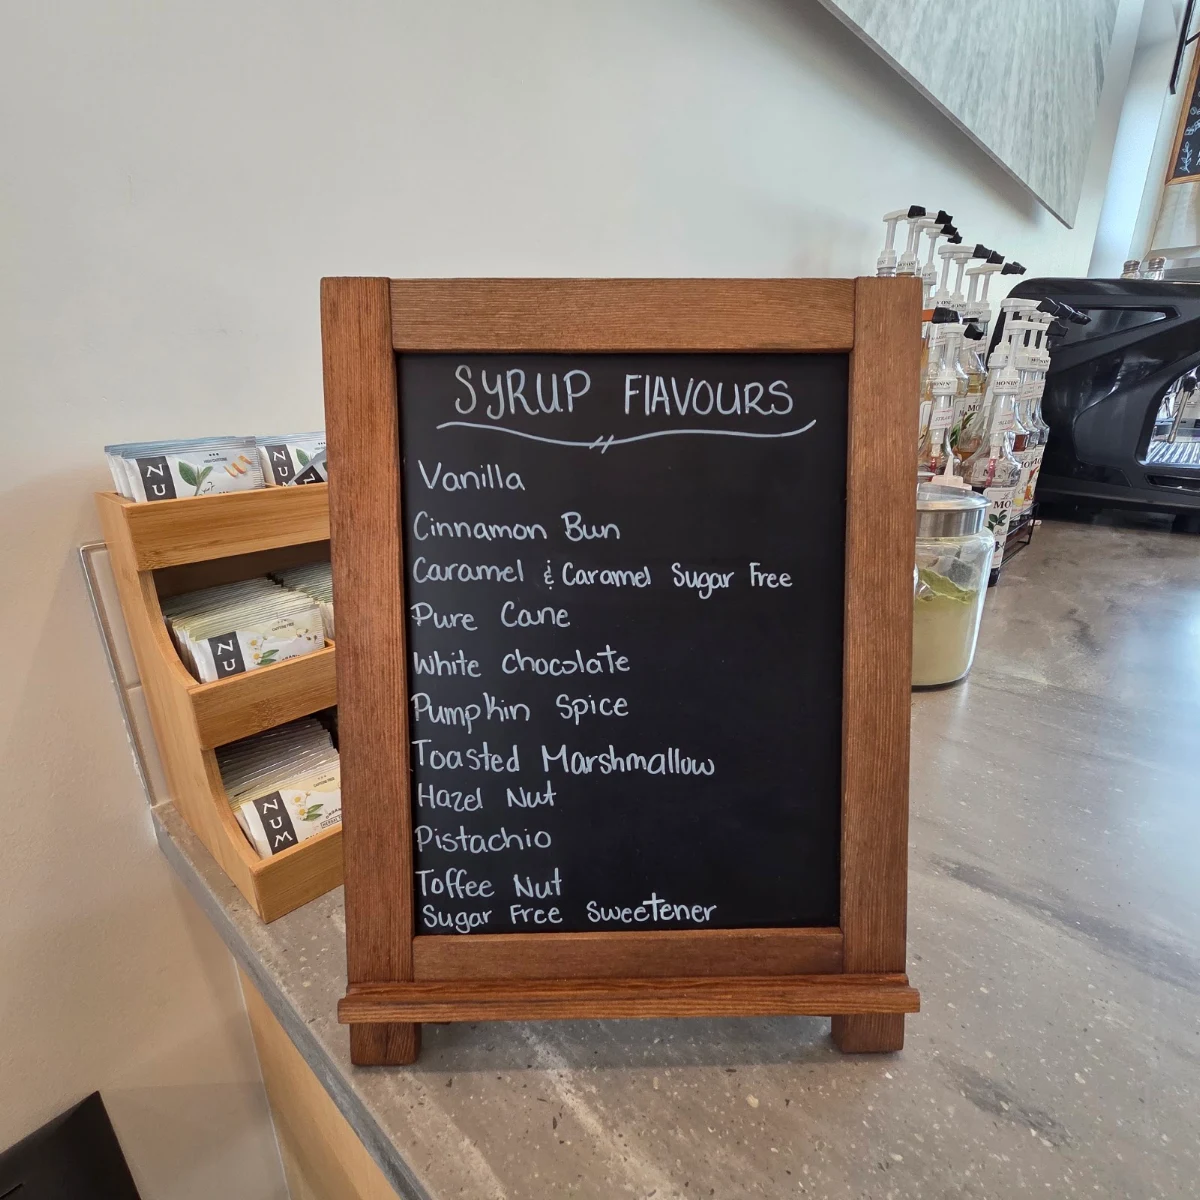 SYRUP FlAVOURS
Vanilla
Cinnamon Bun
Caramel & Caramel Sugar Free
Pure Cane
White Chocolate
Pumpkin Spice
Toasted Marshmallow
Hazel Nut
Pistachio
Toffee Nut
Sugar Free Sweetener
NU
NU
NU
NUM
MONIN